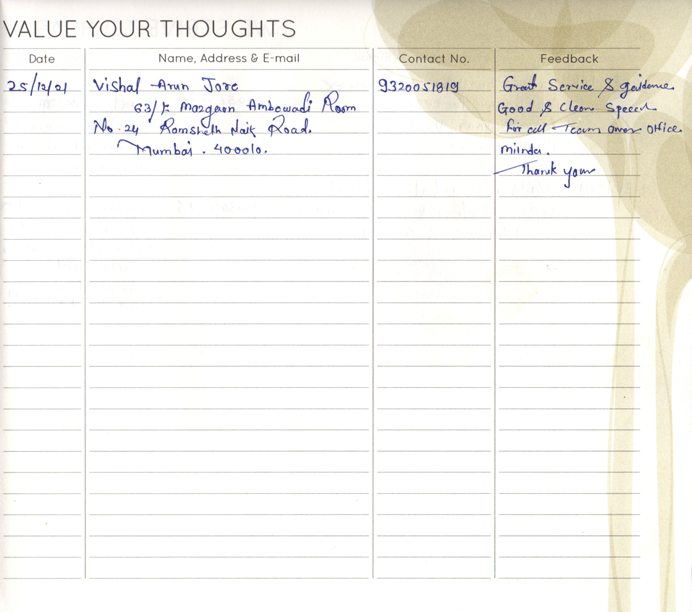 VALUE YOUR THOUGHTS
Date Name, Address & E-mail Contact No. Feedback
25/12/21 Vishal Arun Jore 9320051819 Great Service & guidance
63/F Mazgaon Ambewadi Room Good & Clean Speech
No. 24 Ramsheth Naik Road. for all Team over Office
Mumbai. 400010.
Thank you